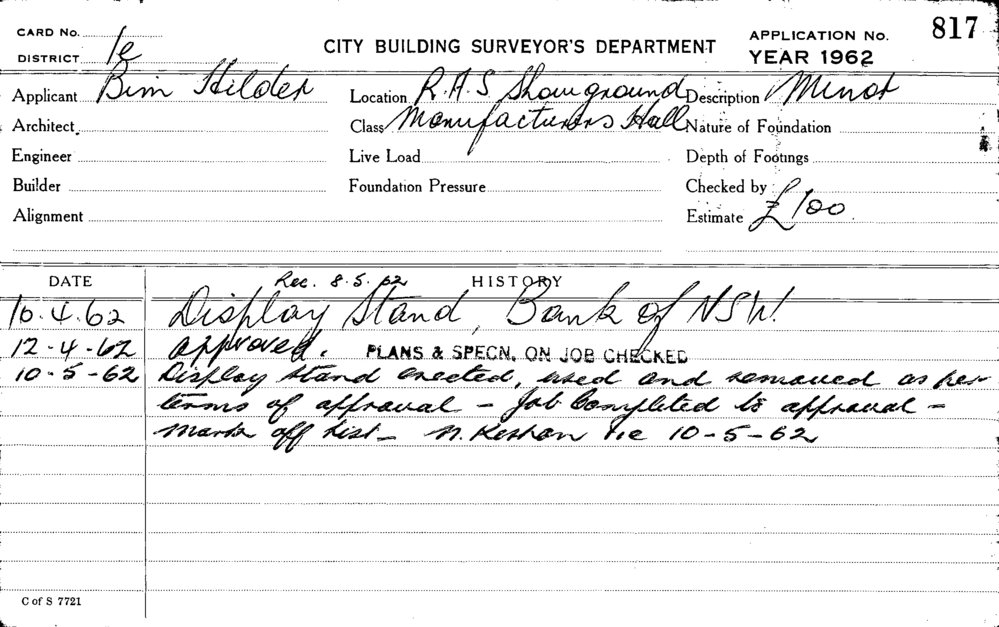 CARD No.
DISTRICT 1e
CITY BUILDING SURVEYOR'S DEPARTMENT
APPLICATION No. 817
YEAR 1962
Applicant Bim Hilder Location R.A.S Showground Description Minor
Architect Class Manufacturers Hall Nature of Foundation
Engineer Live Load Depth of Footings
Builder Foundation Pressure Checked by
Alignment Estimate £100
DATE Rec. 8.5.62 HISTORY
10.4.62 Display Stand, Bank of NSW.
12-4-62 approved. PLANS & SPECN. ON JOB CHECKED
10-5-62 Display stand erected, used and removed as per
terms of approval - Job Completed to approval -
Mark off List - 1e 10-5-62
C of S 7721